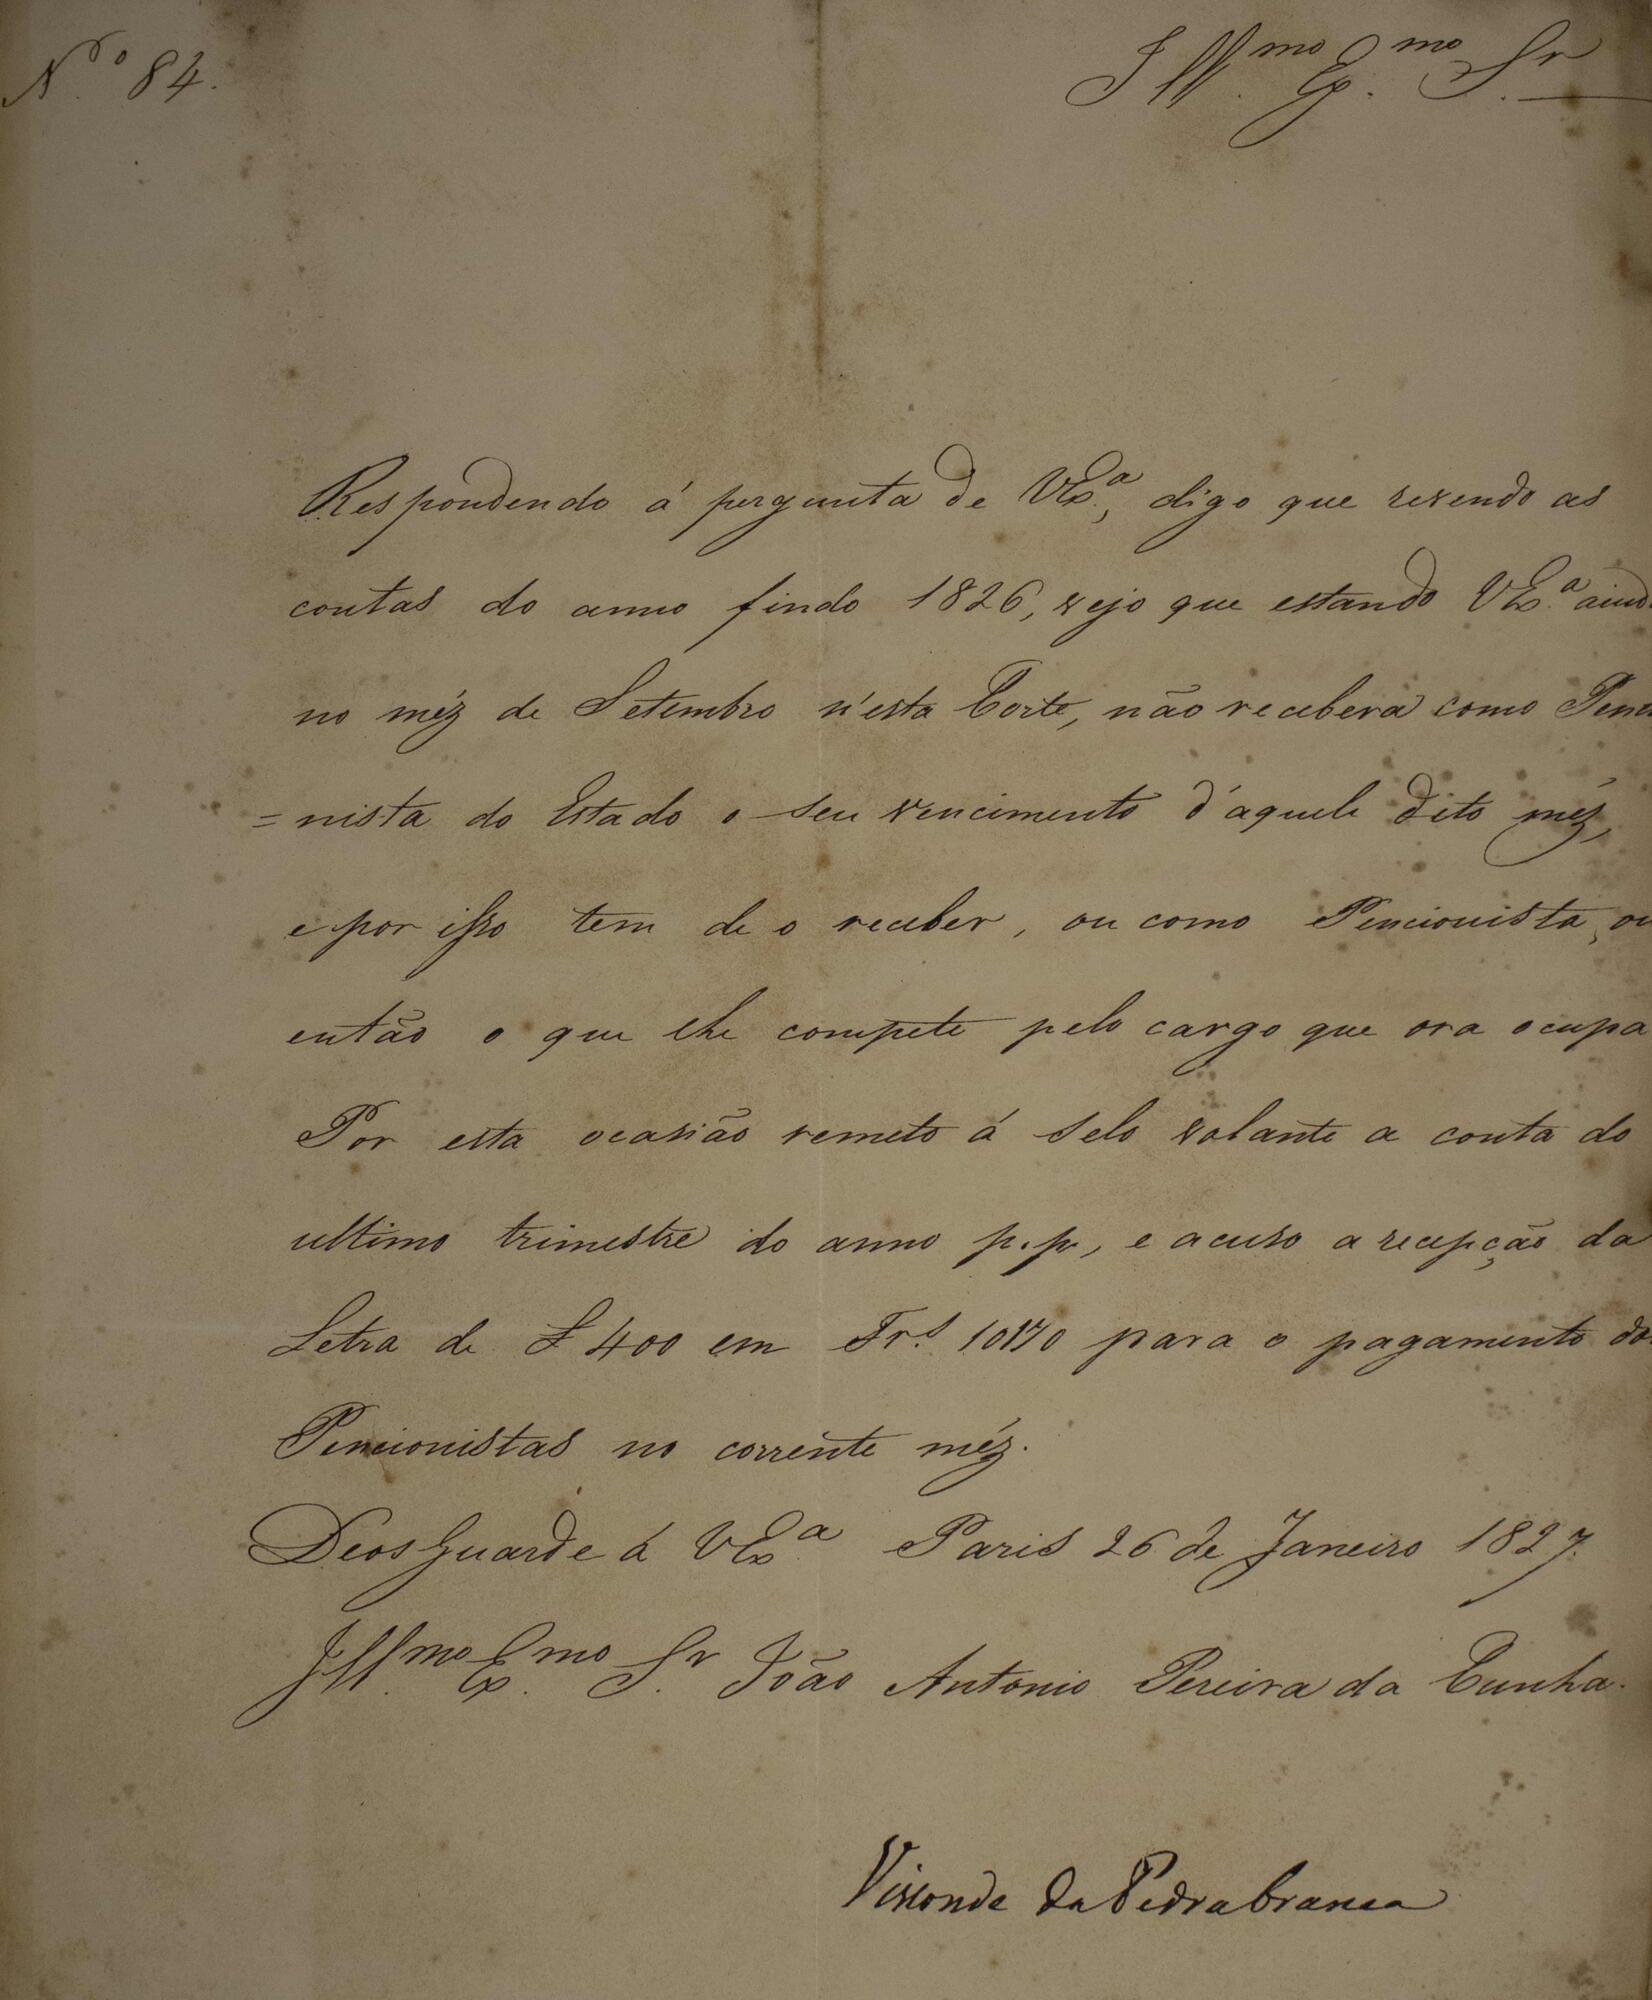 N.º 84.
Ill.mo Ex.mo Sr.
Respondendo á pergunta de VEx.ª, digo que revendo as
contas do anno findo 1826, vejo que estando VEx.ª aind
no méz de Setembro n'esta Corte, não recebera como Penci
=nista do Estado o seu vencimento d'aquele dito méz,
e por isso tem de o receber, ou como Pencionista, ou
então o que lhe compete pelo cargo que ora ocupa
Por esta ocasião remeto á selo volante a conta do
ultimo trimestre do anno p.p., e acuso a recepção da
Letra de £ 400 em Frs. 10170 para o pagamento dos
Pencionistas no corrente méz.
Deos Guarde á VEx.ª Paris 26 de Janeiro 1827.
Ill.mo Ex.mo Sr. João Antonio Pereira da Cunha.
Visconde da Pedra branca